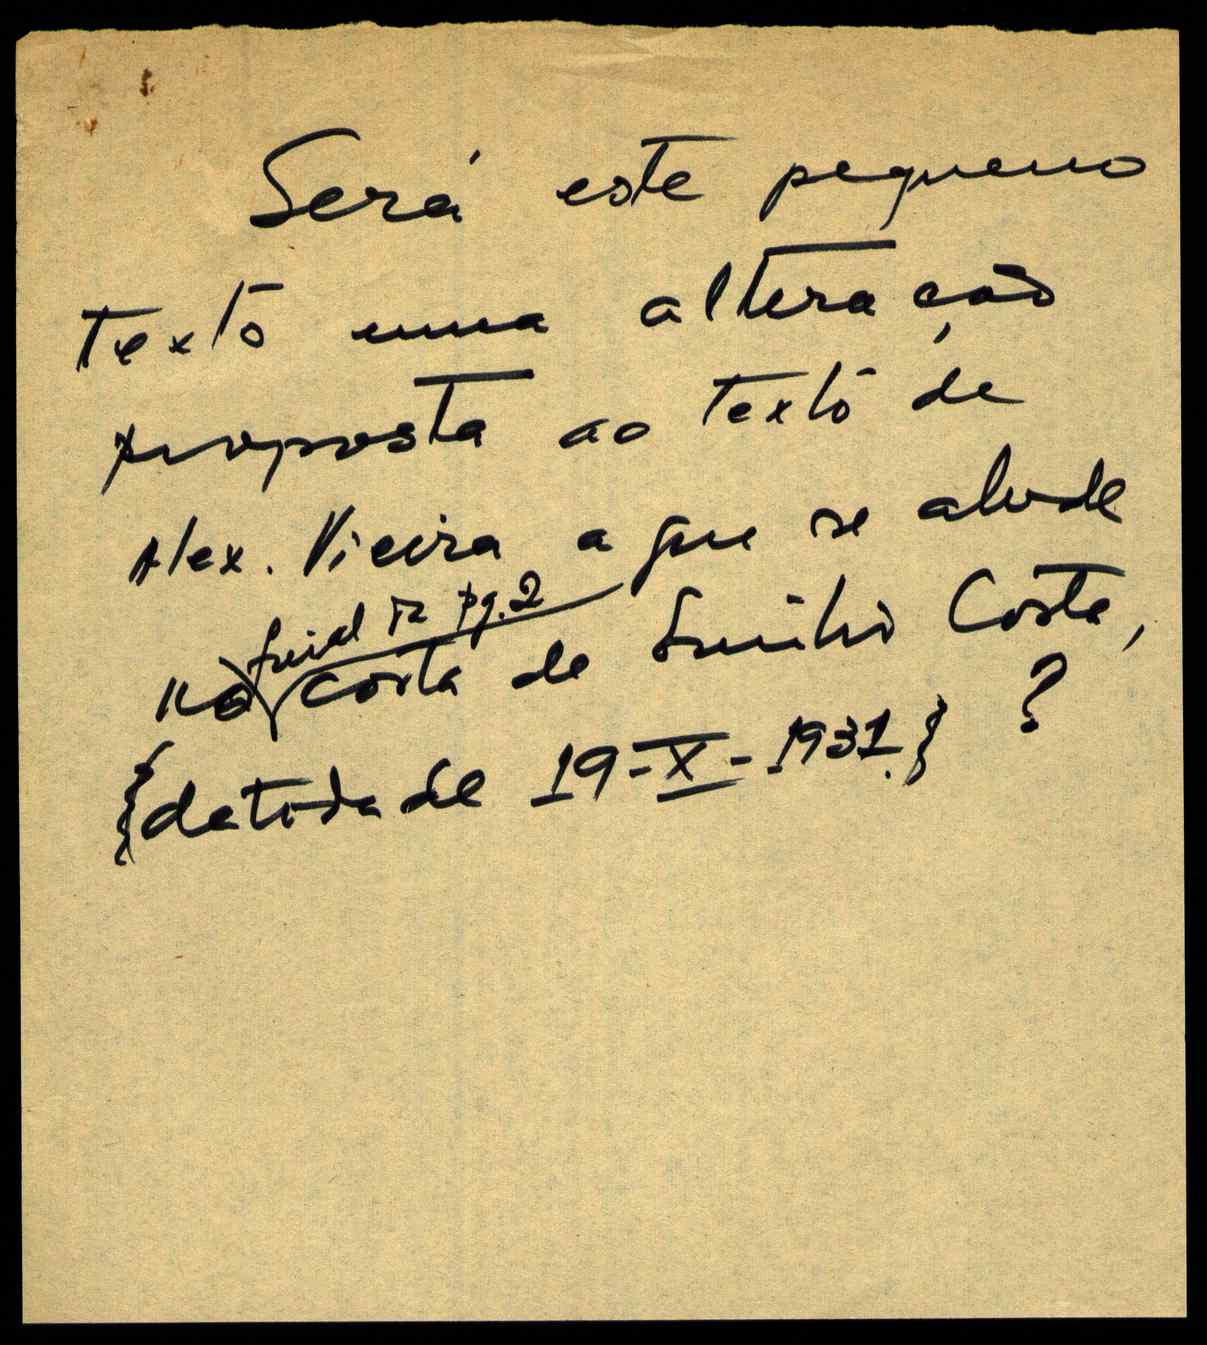 Será este pequeno
texto uma alteração
proposta ao texto de
Alex. Vieira a que se alude
final da pg. 2
no carta de Emílio Costa,
{datada de 19-X-1931.} ?